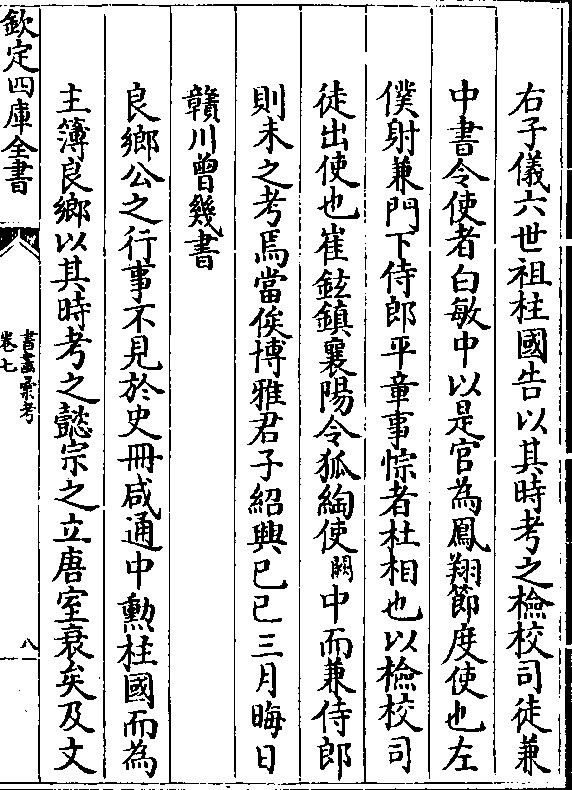 右子儀六世祖柱國告以其時考之檢校司徒兼
中書令使者白敏中以是官為鳳翔節度使也左
僕射兼門下侍郎平章事悰者杜相也以檢校司
徒出使也崔鉉鎮襄陽令狐綯使闕中而兼侍郎
則未之考焉當俟博雅君子紹興己巳三月晦日
贛川曾幾書
良鄉公之行事不見於史冊咸通中勳柱國而為
主簿良鄉以其時考之懿宗之立唐室衰矣及文
欽定四庫全書
書畫彙考
卷七
八